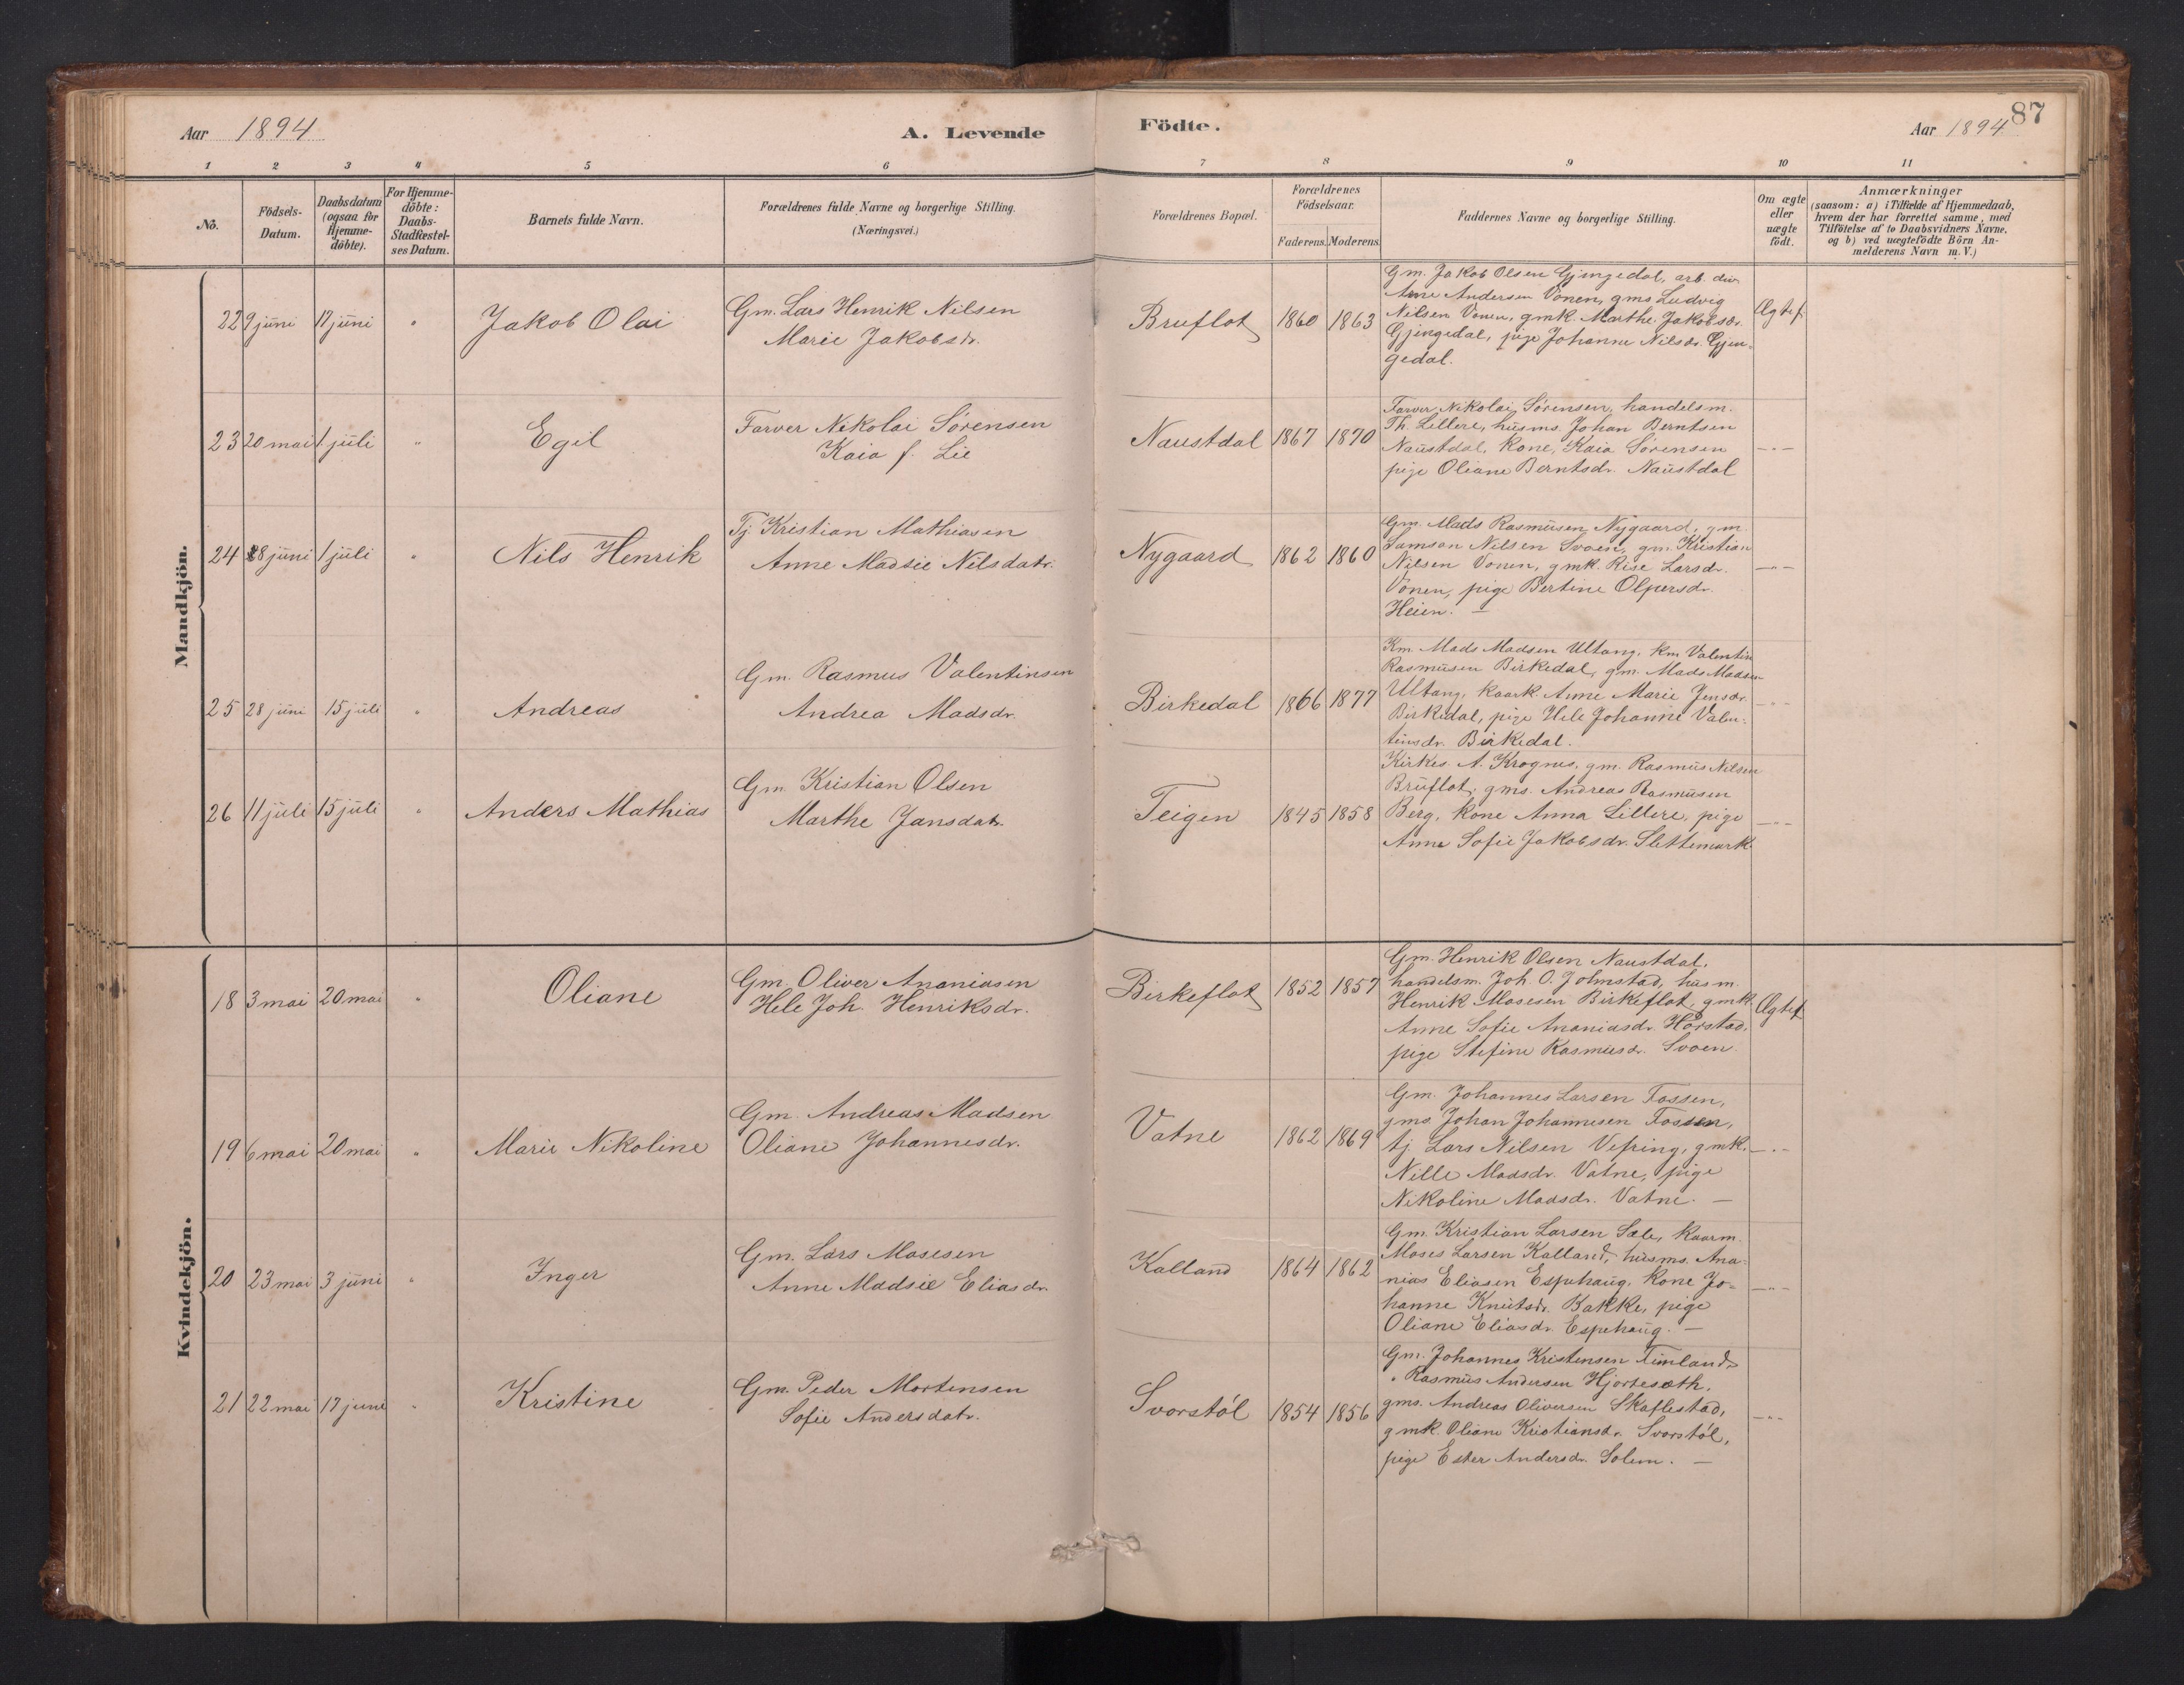 Aar 1894
A. Levende
Födte.
Aar 1894
87
1 2 3 4 5 6 7 8 9 10 11
No.
Födsels-
Datum.
Daabsdatum
(ogsaa for
Hjemme-
döbte).
For Hjemme-
döbte:
Daabs-
Stadfæstel-
ses Datum.
Barnets fulde Navn.
Forældrenes fulde Navne og borgerlige Stilling.
(Næringsvei.)
Forældrenes Bopæl.
Forældrenes
Födselsaar.
Faderens. Moderens.
Faddernes Navne og borgerlige Stilling.
Om ægte
eller
uægte
födt.
Anmærkninger
(saasom: a) i Tilfælde af Hjemmedaab,
hvem der har forrettet samme, med
Tilföielse af to Daabsvidners Navne,
og b) ved uægtefödte Börn An-
melderens Navn m. V.)
Mandkjön.
22 9 juni 17 juni " Jakob Olai
Gm. Lars Henrik Nilsen
Marie Jakobsdr.
Bruflot 1860 1863
Gm. Jakob Olsen Gjengedal, arb.
Arne Andersen Vonen, gms Ludvig
Nilsen Vonen, gmk. Marthe Jakobsdr.
Gjengedal, pige Johanne Nilsdr. Gjen-
gedal.
Ægtef.
23 20 mai 1 juli " Egil
Farver Nikolai Sörensen
Kaia f. Lie
Naustdal 1867 1870
Farver Nikolai Sörensen, handelsm.
Th. Lillere, husms. Johan Berntsen
Naustdal, Kone, Kaia Sörensen
pige Oliane Berntsdr. Naustdal
— " —
24 28 juni 1 juli " Nils Henrik
Tj. Kristian Mathiasen
Anne Madsie Nilsdatr.
Nygaard 1862 1860
Gm. Mads Rasmusen Nygaard, gm.
Samson Nilsen Svoen, gm. Kristian
Nilsen Vonen, gmk. Rise Larsdr.
Vonen, pige Bertine Olpersdr.
Heien. —
— " —
25 28 juni 15 juli " Andreas
Gm. Rasmus Valentinsen
Andrea Madsdr.
Birkedal 1866 1877
Km. Mads Madsen Ullang, Km Valentin
Rasmusen Birkedal, gm. Mads Madsen
Ultang, kaark. Anne Marie Jensdr.
Birkedal, pige Hele Johanne Valen-
tinsdr. Birkedal.
— " —
26 11 juli 15 juli " Anders Mathias
Gm. Kristian Olsen
Marthe Jansdatr.
Teigen 1845 1858
Kirkes. A. Krognes, gm. Rasmus Nilsen
Bruflot, gms. Andreas Rasmusen
Berg, kone Anna Lillere, pige
Anna Sofie Jakobsdr. Slettemark
— " —
Kvindekjön.
18 3 mai 20 mai " Oliane
Gm. Oliver Ananiasen
Hele Joh. Henriksdr.
Birkeflot 1852 1857
Gm. Henrik Olsen Naustdal,
handelsm. Joh. O. Jolmstad, husm.
Henrik Mosesen Birkeflot, gmk.
Anne Sofie Ananiasdr. Horstad,
pige Stefine Rasmusdr. Svoen.
Ægtef.
19 6 mai 20 mai " Marie Nikoline
Gm. Andreas Madsen
Oliane Johannesdr.
Vatne 1862 1869
Gm. Johannes Larsen Fossen,
gms Johan Johannesen Fossen,
tj. Lars Nilsen Vefring, gmk.
Nille Madsdr. Vatne, pige
Nikoline Madsdr. Vatne. —
— " —
20 23 mai 3 juni " Inger
Gm. Lars Mosesen
Anne Madsie Eliasdr.
Kalland 1864 1862
Gm. Kristian Larsen Sæle, kaarm.
Moses Larsen Kalland, husms. Ana-
nias Eliasen Espehaug, kone Jo-
hanne Knutsdr. Bakke, pige
Oliane Eliasdr. Espehaug. —
— " —
21 22 mai 17 juni " Kristine
Gm. Peder Mortensen
Sofie Andersdatr.
Svorstöl 1854 1856
Gm. Johannes Kristensen Timland,
" Rasmus Andersen Hjortesæth,
gms. Andreas Oliversen Skaflestad,
gmk. Oliane Kristiansdr. Svorstöl,
pige Ester Andersdr. Solem. —
— " —